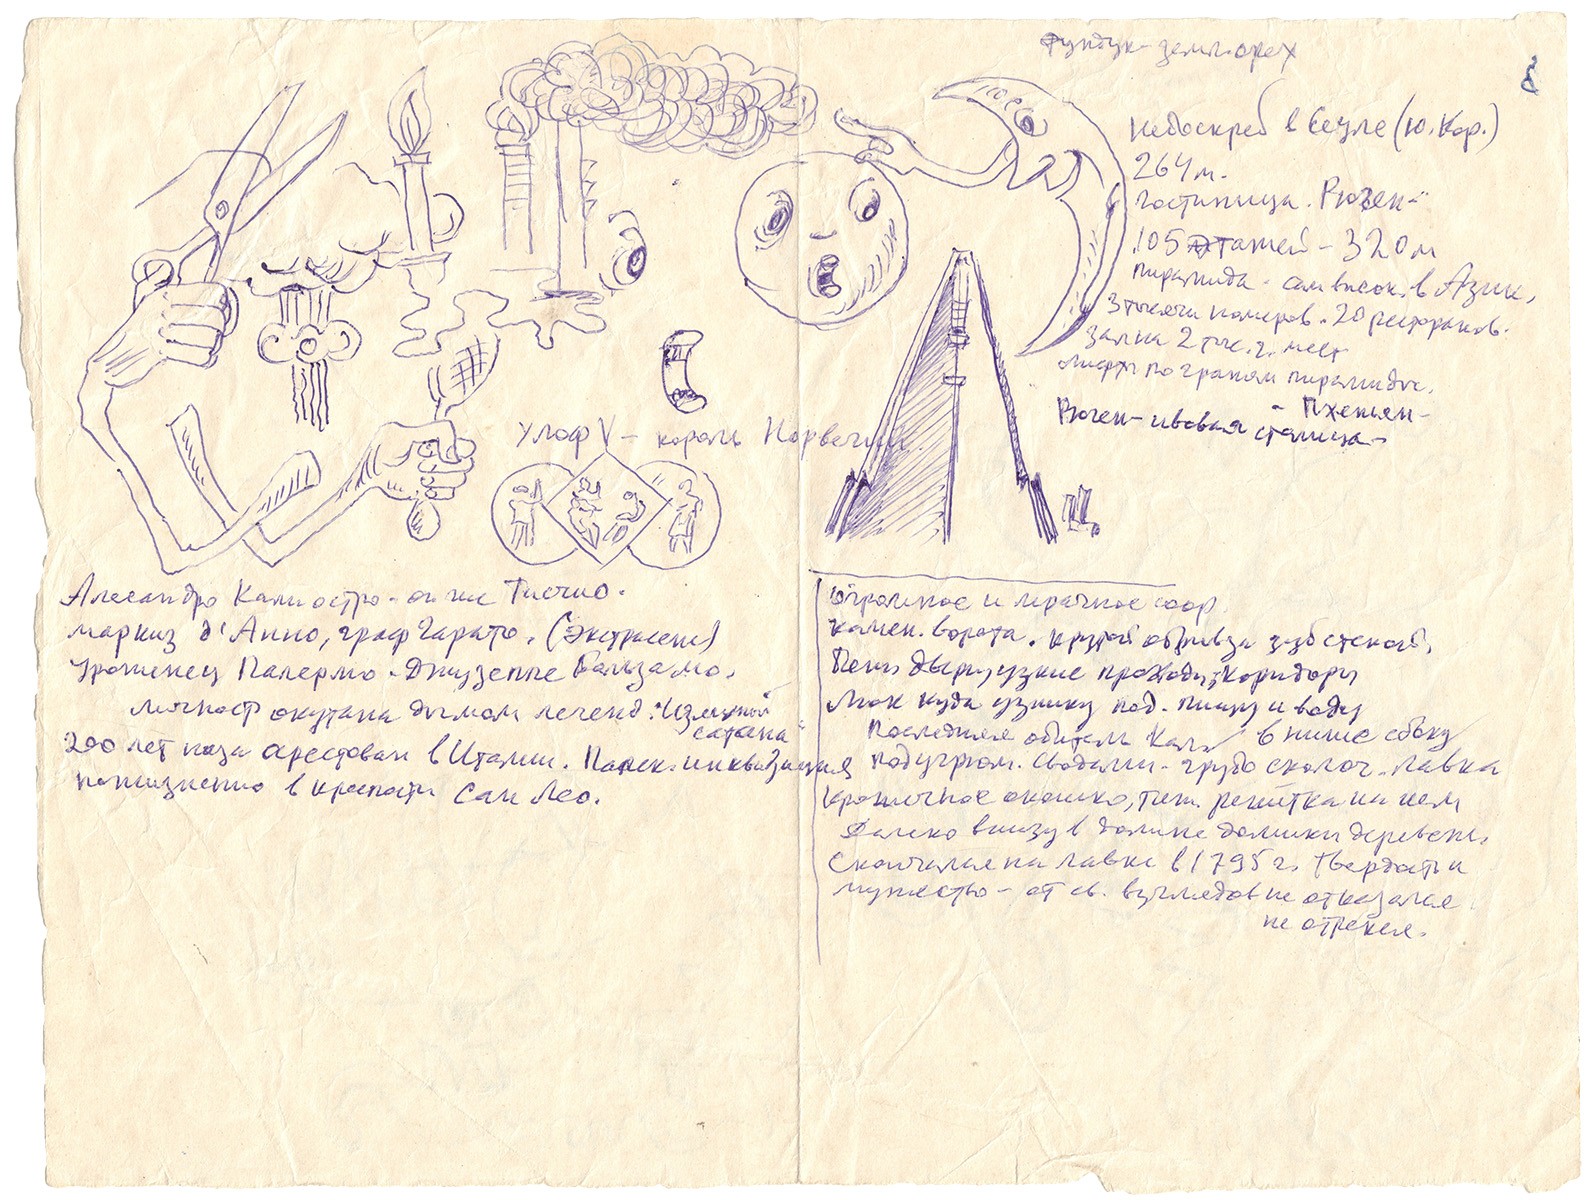 Фундук - земл. орех
8
Небоскреб в Сеуле (Ю. Кор.)
264 м.
Гостиница. Рюген -
105 этажей - 320 м
пирамида - сам. высок. в Азии,
3 тысячи номеров. 20 ресторанов.
зал на 2 тыс. ч. мест
лифты по граням пирамиды.
Рюген - ивовая столица -
- Пхеньян -
Улоф V - король Норвегии
Алесандро Калиостро - он же Тисчио.
маркиз д'Анно, граф Гарато. (Экстрасенс)
Уроженец Палермо - Джузеппе Бальзамо.
личност окутана дымом легенд.
сатана"
200 лет наза арестован в Италии. Папск. инквизиция
пожизненно в крепости Сан Лео.
Огромное и мрачное соор.
камен. ворота. крутой обрыв за зубс стеной.
узкие проходы, коридоры
Люк куда узнику под. пищу и воду
Последняя обитель Кал. в нише сбоку
под угрюм. сводами - грубо сколоч. лавка
крошечное окошко, решетка на нем
далеко внизу в долине домики деревень.
Скончался на лавке в 1795 г. Твердость и
мужество - от св. взглядов не отказался
не отрекся.